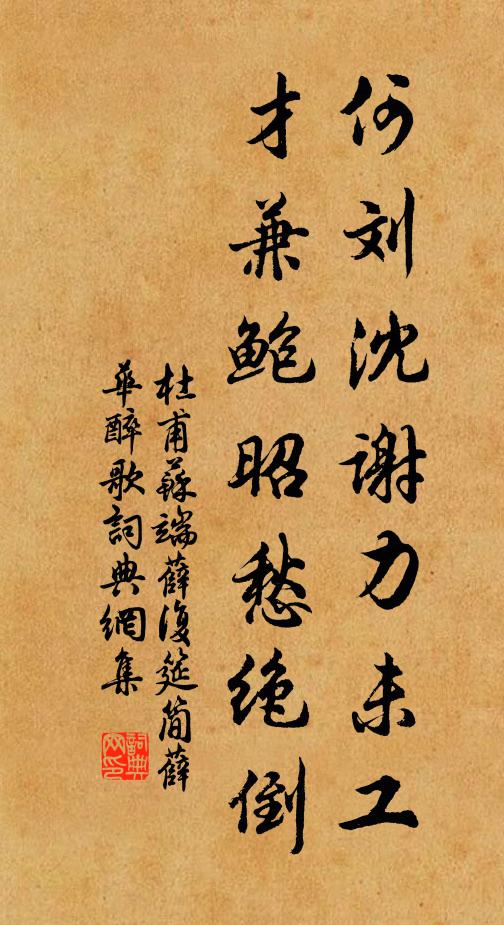 何刘沈谢力未工
才兼鲍昭愁绝倒
杜甫蘇端薛復筵簡薛
華醉歌詞典網集
詞典
网印